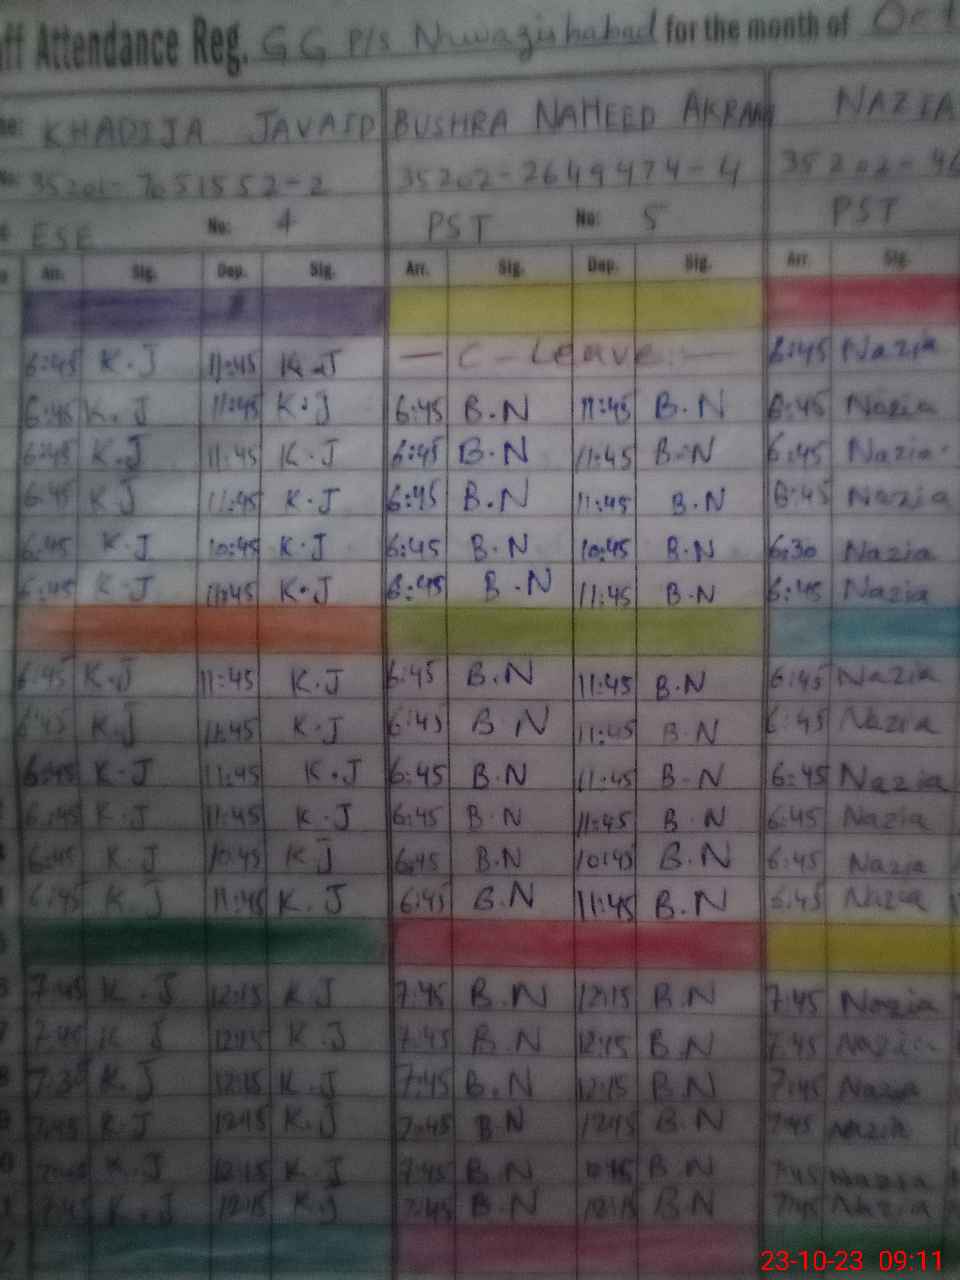 ff Attendance Reg. GG P/s Nwazishabad for the month of Oct
me: KHADIJA JAVAID BUSHRA NAHEED AKRAM NAZIA
No: 35202-7051552-2 35202-2649474-4 35202-46
ESE No: 4 PST No: 5 PST
Arr. Sig. Dep. Sig. Arr. Sig. Dep. Sig. Arr. Sig.
6:45 K.J 11:45 K.J — C-Leave — 6:45 Nazia
6:45 K.J 11:45 K.J 6:45 B.N 11:45 B.N 6:45 Nazia
6:45 K.J 11:45 K.J 6:45 B.N 11:45 B.N 6:45 Nazia
6:45 K J 11:45 K.J 6:45 B.N 11:45 B.N 6:45 Nazia
6:45 K.J 10:45 K.J 6:45 B.N 10:45 B.N 6:30 Nazia
6:45 K.J 11:45 K.J 6:45 B.N 11:45 B.N 6:45 Nazia
6:45 K.J 11:45 K.J 6:45 B.N 11:45 B.N 6:45 Nazia
6:45 K.J 11:45 K.J 6:45 B N 11:45 B.N 6:45 Nazia
6:45 K.J 11:45 K.J 6:45 B.N 11:45 B.N 6:45 Nazia
6:45 K.J 11:45 K.J 6:45 B.N 11:45 B.N 6:45 Nazia
6:45 K.J 10:45 K J 6:45 B.N 10:45 B.N 6:45 Nazia
6:45 K.J 11:45 K.J 6:45 B.N 11:45 B.N 6:45 Nazia
7:45 K.J 12:15 K.J 7:45 B.N 12:15 B.N 7:45 Nazia
7:45 K J 12:15 K.J 7:45 B.N 12:15 B.N 7:45 Nazia
7:30 K.J 12:15 K.J 7:45 B.N 12:15 B.N 7:45 Nazia
7:45 K.J 12:15 K.J 7:45 B.N 12:15 B.N 7:45 Nazia
7:45 K.J 12:15 K.J 7:45 B.N 12:15 B.N 7:45 Nazia
7:45 K.J 12:15 K.J 7:45 B.N 12:15 B.N 7:45 Nazia
23-10-23 09:11